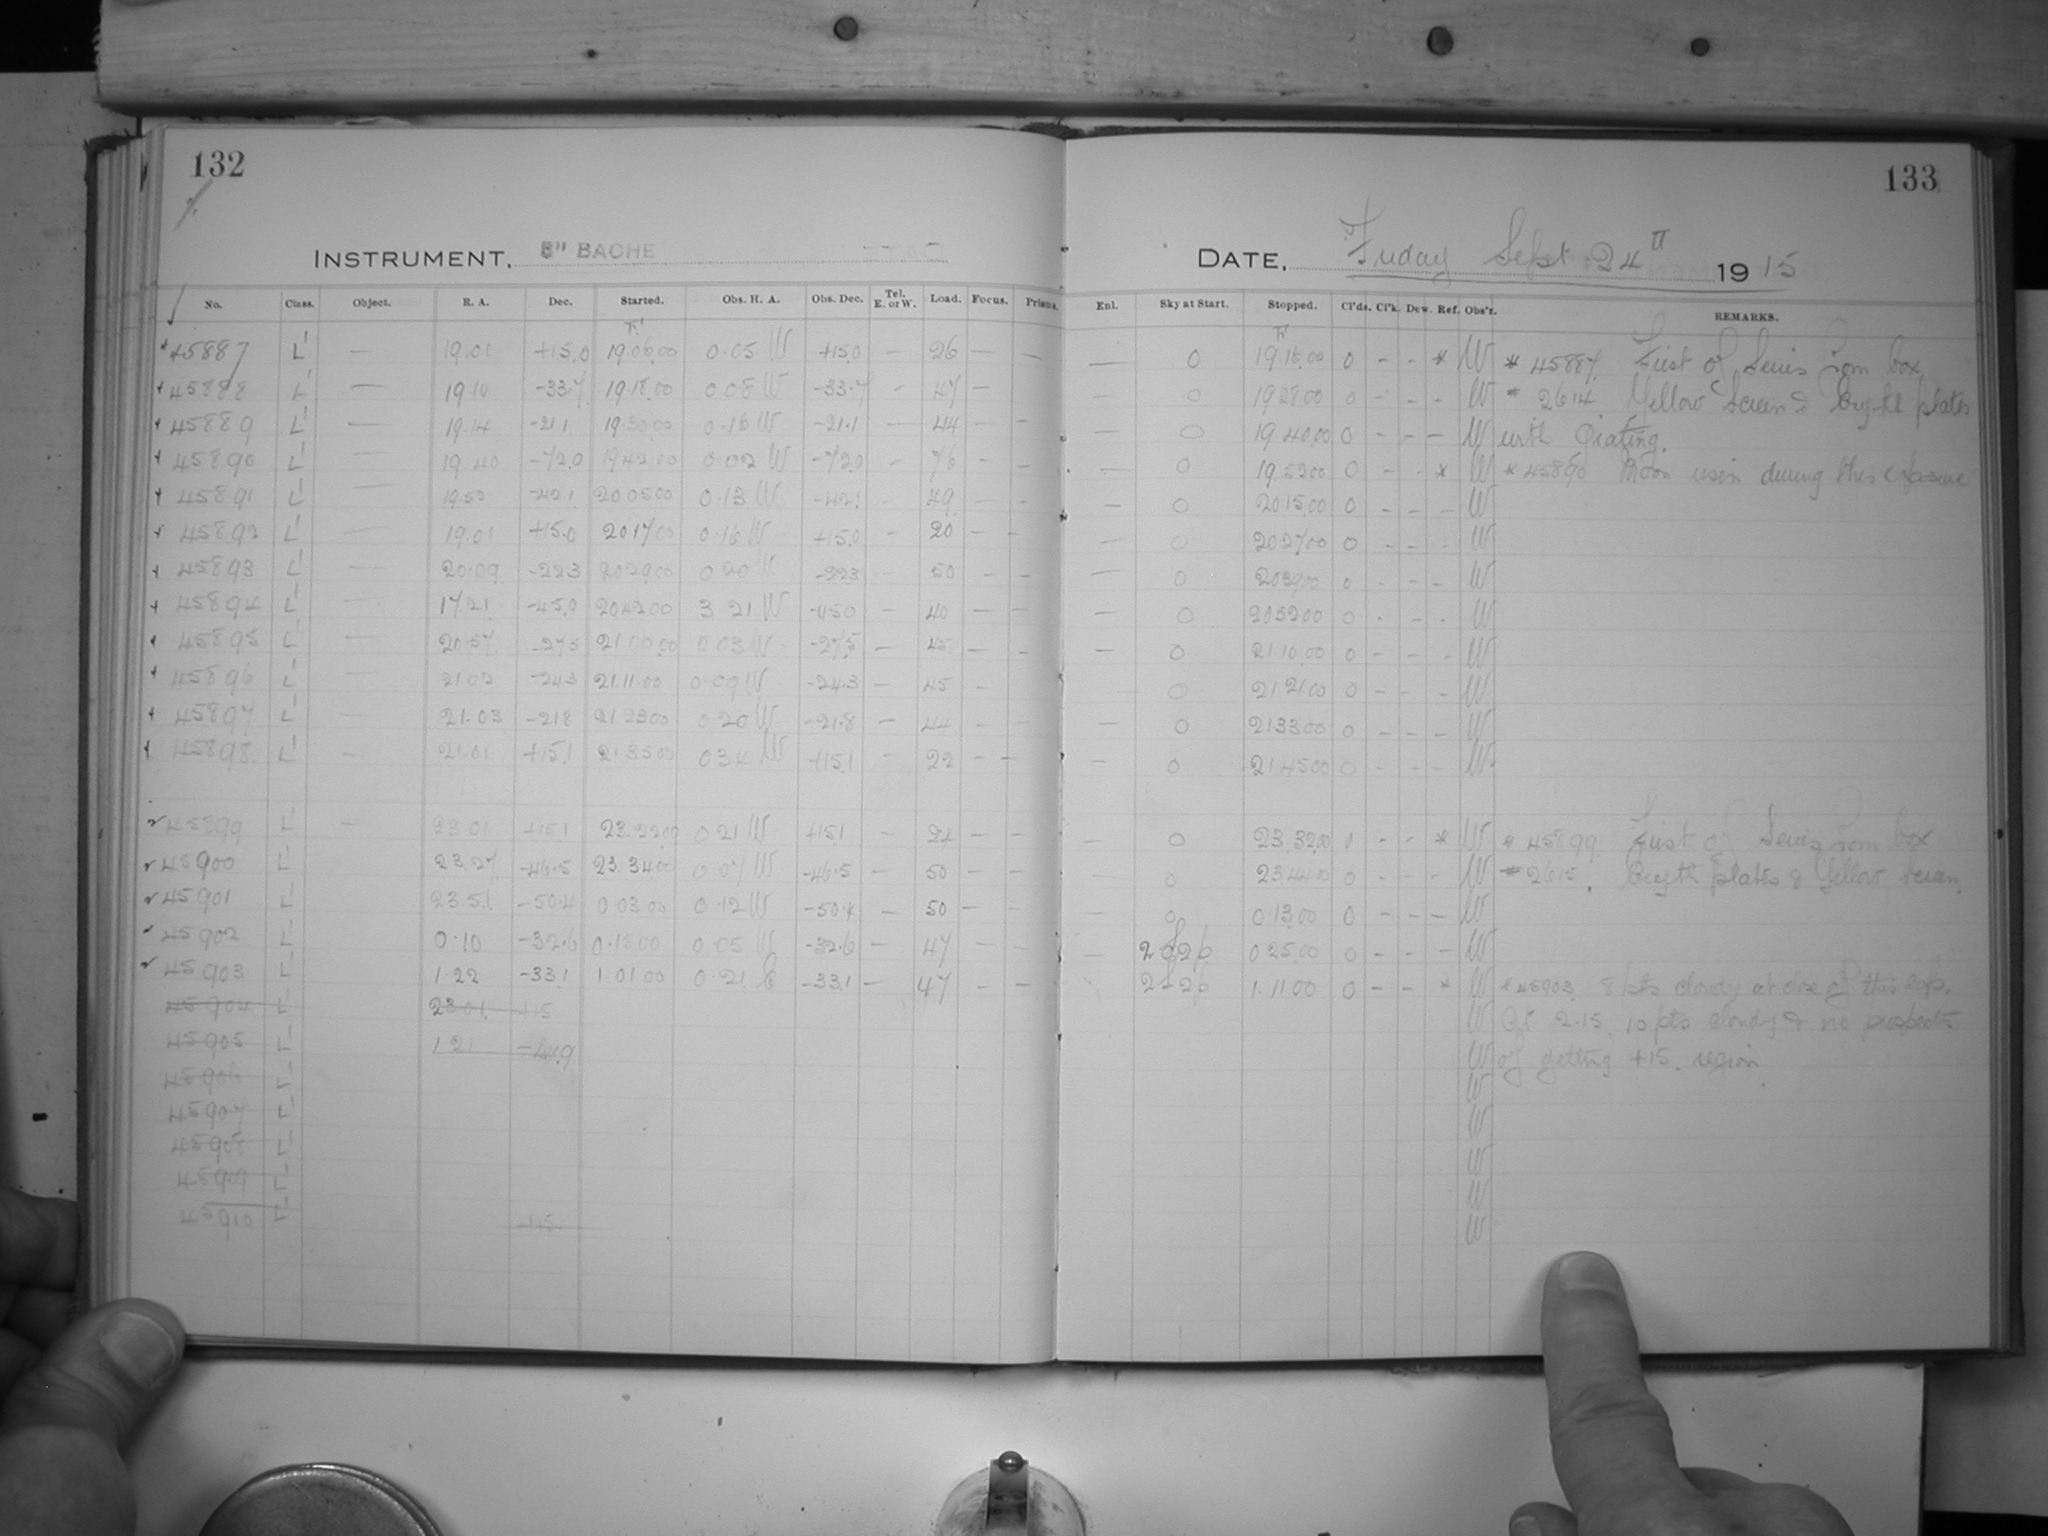 132
133
INSTRUMENT. 8" BACHE
DATE. Friday Sept 24 1915
No. Class. Object. R. A. Dec. Started. Obs. H. A. Obs. Dec. Tel. E. or W. Load. Focus. Prisms. Enl. Sky at Start. Stopped. Cl'ds. Cl'k. Dew. Ref. Obs'r. REMARKS.
45887 L' — 19.01 +15.0 19.06.00 0.05 W +15.0 — 26 — — — 0 19.16.00 0 - - * W * 45887. First of Series from box
45888 L' — 19 10 -33.7 19.18.00 0.08 W -33.7 - 47 — — 0 19 28 00 0 - - - W # 2614. Yellow Screen & plates
45889 L' — 19.14 -21.1 19.30.00 0.16 W -21.1 — 44 — - — 0 19.40.00 0 - - - W with Grating.
45890 L' — 19.40 -72.0 19 42 00 0.02 W -72.0 - 76 - - — 0 19.52 00 0 - - * W * 45890 Moon risen during this exposure
45891 L' — 19.52 -42.1 20 05 00 0.13 W -42.1 — 49 - - — 0 20 15.00 0 - - - W
45892 L' — 19.01 +15.0 20 17 00 0.16 W +15.0 - 20 - - — 0 20 27 00 0 - - - W
45893 L' — 20.09 -22.3 20 29 00 0 20 W -22.3 - 50 - - — 0 20 39 00 0 - - - W
45894 L' — 17 21 -45.0 20 42 00 3 21 W -45.0 - 40 - - — 0 20 52 00 0 - - - W
45895 L' — 20.57 -27.5 21.00.00 0.03 W -27.5 — 45 — - — 0 21 10.00 0 - - - W
45896 L' — 21.02 -24.3 21.11.00 0.09 W -24.3 — 45 - — 0 21 21.00 0 - - - W
45897 L' — 21.03 -21.8 21 23 00 0.20 W -21.8 — 44 - - — 0 21 33 00 0 - - - W
45898 L' - 21.01 +15.1 21 35 00 0 34 W +15.1 - 22 - - — 0 21 45 00 0 - - - W
45899 L' — 23 01 +15.1 23.22 00 0 21 W +15.1 - - - 0 23.32.00 0 - - * W * 45899. First of Series from box
45900 L' 23.27 -46.5 23.34 00 0.07 W -46.5 — 50 - - 0 23 44 00 0 - - - W # 2615. plates & Yellow Screen.
45901 L' 23.51 -50.4 0.03 00 0.12 W -50.4 — 50 — - — 0 0.13.00 0 - - - W
45902 L' 0.10 -32.6 0.15 00 0.05 W -32.6 — 47 - - — 0 25.00 0 - - - W
45903 L' 1.22 -33.1 1.01.00 0.21 E -33.1 — 47 - - 1.11.00 0 - - * W * 45903. 8 pts cloudy at close of this exp.
45904 L' 23 01 +15 W At 2.15. 10 pts cloudy & no prospects
45905 L' 1 21 W of getting +15. region.
45906 L' W
45907 L' W
45908 L' W
45909 L' W
45910 L' +15 W